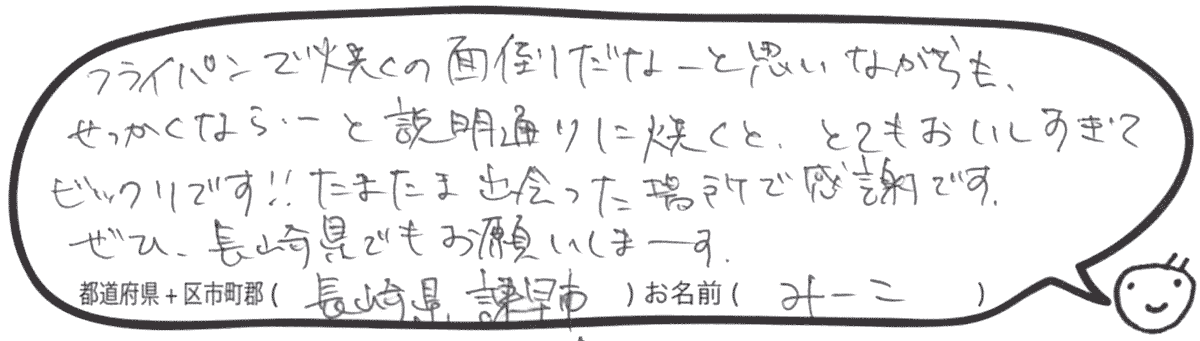 フライパンで焼くの面倒りだなーと思いながらも、
せっかくなら…と説明通りに焼くと、とてもおいしすぎて
ビックリです!!たまたま出会った場所で感謝です。
ぜひ、長崎県でもお願いしまーす。
都道府県+区市町郡(長崎県 諫早市)お名前(みーこ)